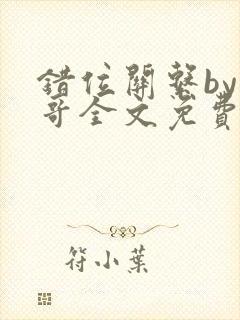 錯位關繫by
哥全文免費
符小葉